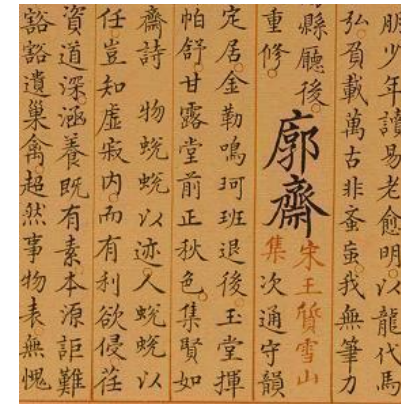 朋少年讀易老愈明以龍代馬
弘負載萬古非蚤䖟我無筆力
縣廳後
重修
廓齋
宋王質雪山
集 次通守韻
定居金勒鳴珂班退後玉堂揮
帕舒甘露堂前正秋色集賢如
齋詩 物蛻蛻以迹人蛻蛻以
任豈知虛寂内而有利欲侵荏
資道深涵養既有素本源詎難
豁豁遺巢禽超然事物表無愧